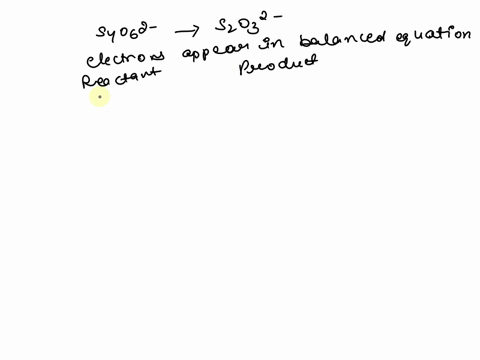 S4O6 2- → S2O3 2-
electrons appear in balanced equation
Reactant Product